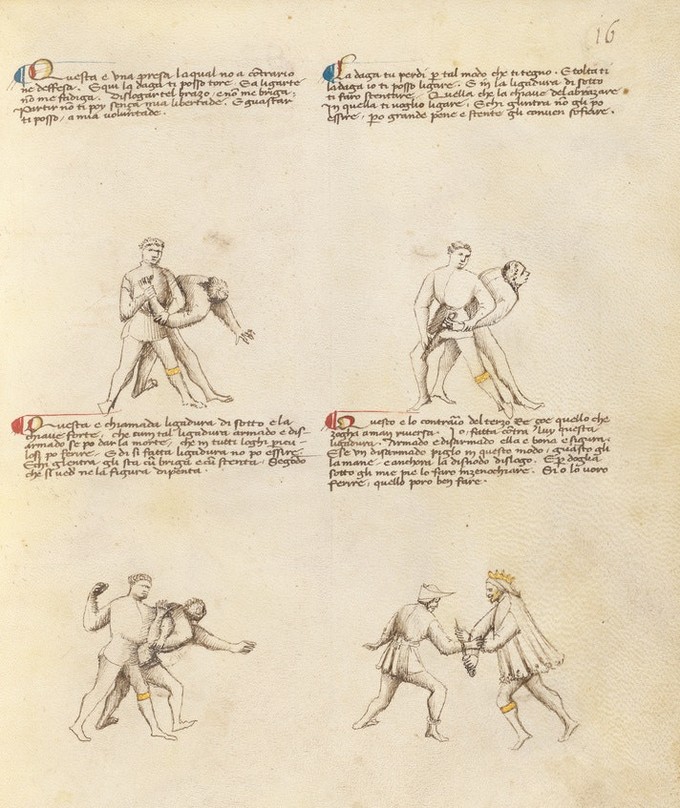 16
Questa e una presa la qual no a contrario
ne deffesa. E qui la daga ti posso tore. E a ligarte
no me fadiga. Dislogar tel brazo, e no me briga,
Partir no ti poy senza mia libertade. E guastar
ti posso, a mia voluntade.
La daga tu perdi p tal modo che ti tegno. E tolta ti
la daga io ti posso ligare. E in la ligadura di sotto
ti faro stentare. Quella che la chiave del abrazare
in quella ti voglio ligare. E chi glintra no gli po
essire, p o grande pene e stente gli conven sofrire.
Questa e chiamada ligadura di sotto e la
chiave forte, che cum tal ligadura armado e dis
armado se po dar la morte, che in tutti loghi pricu
losi po ferire. E di si fatta ligadura no po essire.
E chi glentra gli sta cu briga e cu stenta. Segodo
che si ved ne la figura dipenta.
Questo e lo contrario del terzo Re zoe quello che
zogha a man riversa. Io fatta contra luy questa
ligadura. Armado e disarmado ella e bona e sigura.
E se un disarmado piglo in questo modo, guasto gli
la mane e anchora la disnodo dislogo. E p doglia
sotto gli mie pie lo faro inzenochiare. Si o lo voro
ferire, quello poro ben fare.